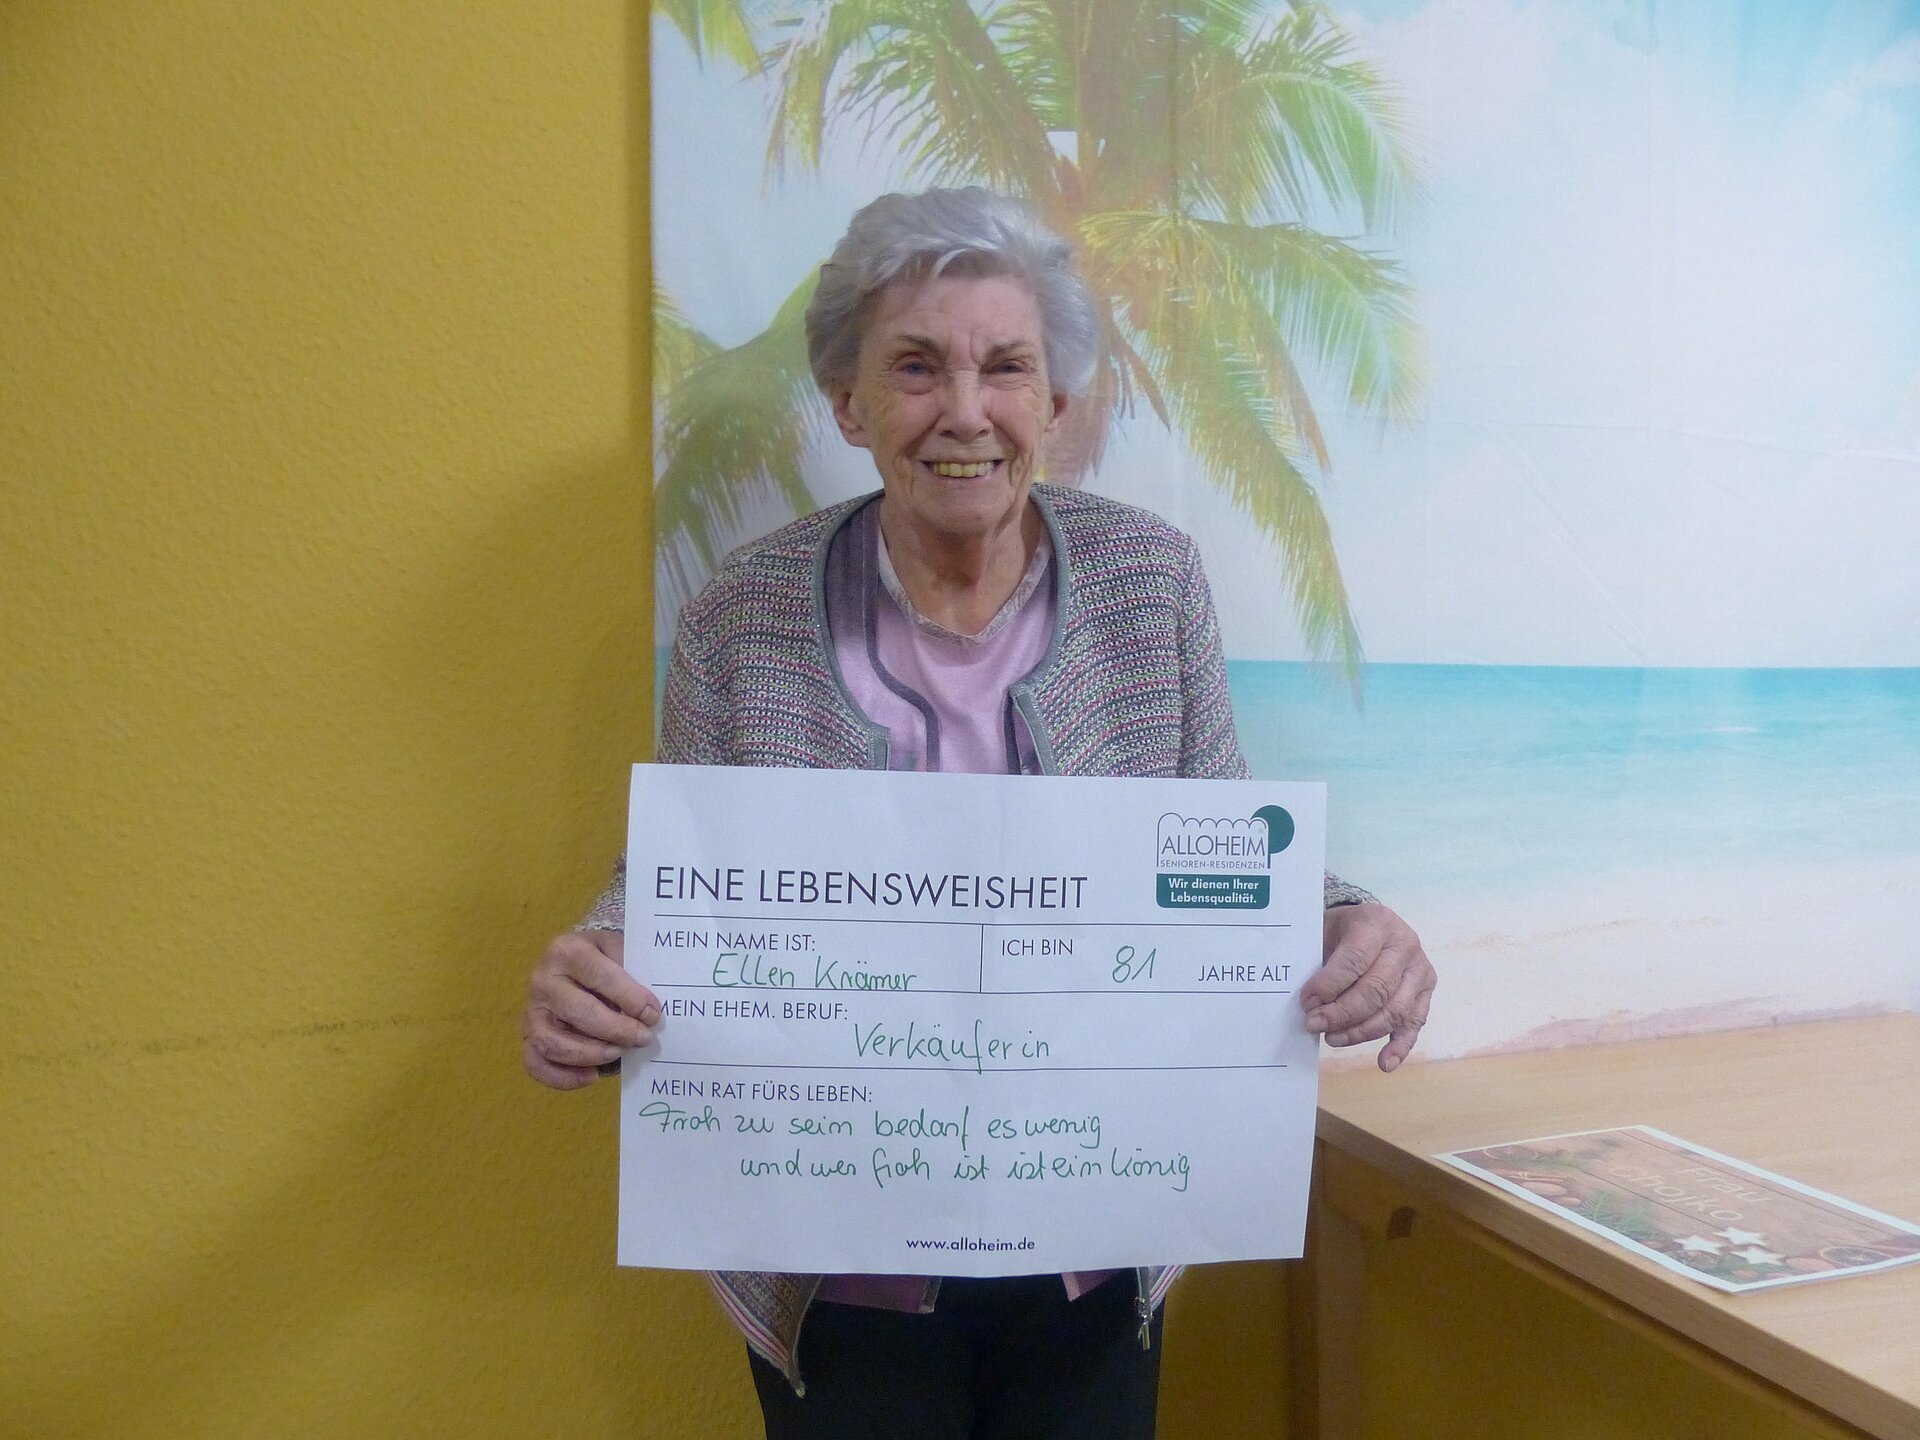 ALLOHEIM
SENIOREN-RESIDENZEN
Wir dienen Ihrer
Lebensqualität.
EINE LEBENSWEISHEIT
MEIN NAME IST:
Ellen Krämer
ICH BIN 81 JAHRE ALT
MEIN EHEM. BERUF:
Verkäuferin
MEIN RAT FÜRS LEBEN:
Froh zu sein bedarf es wenig
und wer froh ist ist ein König
www.alloheim.de
Frau